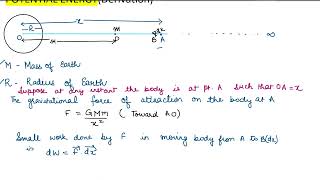 POTENTIAL ENERGY (Derivation)
x
R
m
dx
O
x
P
B
A
∞
M - Mass of Earth
R - Radius of Earth
Suppose at any instant the body is at pt. A such that OA = x
The gravitational force of attraction on the body at A
F = GMm / x² ( Toward AO)
Small work done by F in moving body from A to B (dx)
is dW = F⃗ . dx⃗